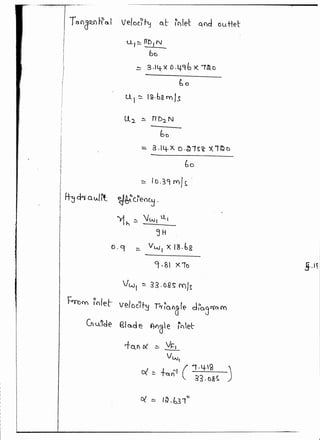 Tangential velocity at inlet and outlet
u₁ = ΠD₁N
60
= 3.14 x 0.496 x 720
60
u₁ = 18.68 m/s
u₂ = ΠD₂N
60
= 3.14 x 0.2758 x 720
60
= 10.39 m/s
Hydraulic efficiency.
ηh = Vw₁ u₁
gH
0.9 = Vw₁ x 18.68
9.81 x 70
Vw₁ = 33.085 m/s
From inlet velocity Triangle diagram
Guide Blade Angle inlet
tan α = VF₁
Vw₁
α = tan⁻¹ ( 7.418 )
33.085
α = 12.637°